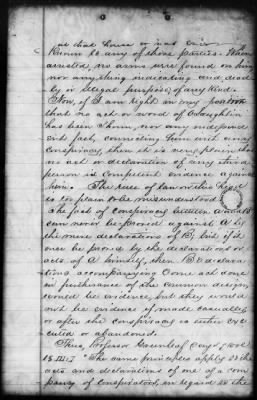 at that house or was ever
known to any of those parties. When
arrested, no arms were found on him
nor any thing indicating and deed
by or illegal purpose, of any kind.
Now, if I am right in my position
that no act or word of O'Laughlin
has been shown, nor any independ
ent fact, connecting him with any
conspiracy, then it is very plain that
no act or declaration of any third
person is competent evidence against
him. The rule of law on this head
is too plain to be misunderstood.
The fact of conspiracy between A and B
can never be proved against A by
the mere declarations of B, but if it
once be proved by the declarations or
acts of A himself, then B's declara
tions accompanying some act done
in furtherance of the common design,
would be evidence, but they would
not be evidence if made casually
or after the conspiracy is either exe
cuted or abandoned.
Thus, Professor Greenleaf says
"The same principles apply to the
acts and declarations of one of a com
pany of conspirators, in regard to the